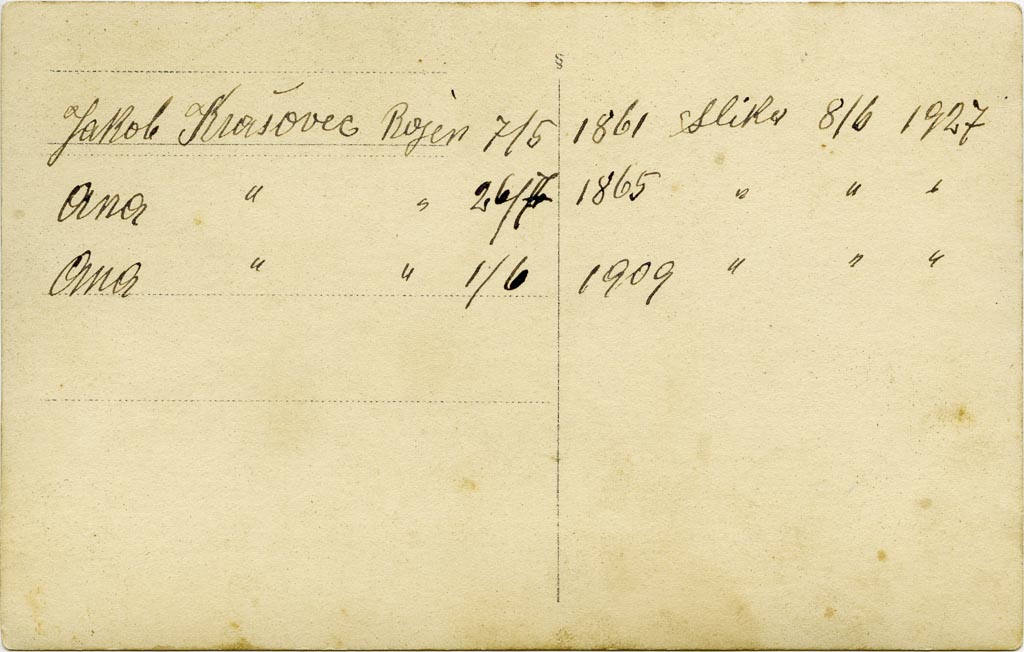 Jakob Krašovec Rojen 7/5 1861 Slika 8/6 1927
Ana " " 26/7 1865 " " "
Ana " " 1/6 1909 " " "